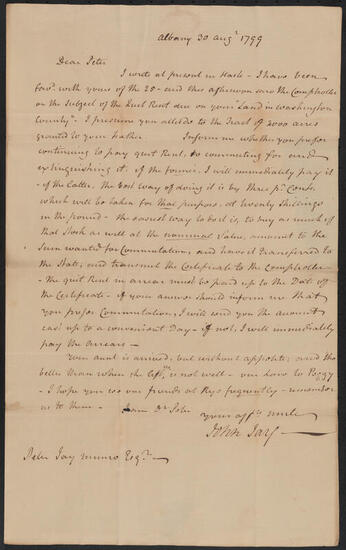 Albany 30 Augt 1799
Dear Peter
I write at present in Haste - I have been
favd. with yours of the 25 - and this afternoon saw the Comptroller
on the Subject of the Quit Rent due on your "Land in Washington
County" - I presume you allude to the Tract of 2000 acres
granted to your Father Inform me whether you prefer
continuing to pay quit Rent, to commuting for and
extinguishing it. if the former, I will immediately pay it
- if the latter, the best way of doing it is by three pr Cents.
which will be taken for that purpose, at twenty shillings
in the pound - the easiest way to do it is, to buy as much of
that Stock as will at the nominal Value, amount to the
Sum wanted for Commutation, and have it transferred to
the State, and transmit the Certificate to the Comptroller -
the quit Rent in arrear must be paid up to the Date of
the Certificate - If your answer should inform me that
you prefer Commutation, I will send you the amount
cast up to a convenient Day - if not, I will immediately
pay the Arrears -
Your aunt is arrived, but without appetite, and tho
better than when she left is not well - our Love to Peggy
- I hope you see our friends at Rye frequently - remember
us to them - I am Dr Peter
your afft. uncle
John Jay -
Peter Jay Munro Esqr. -